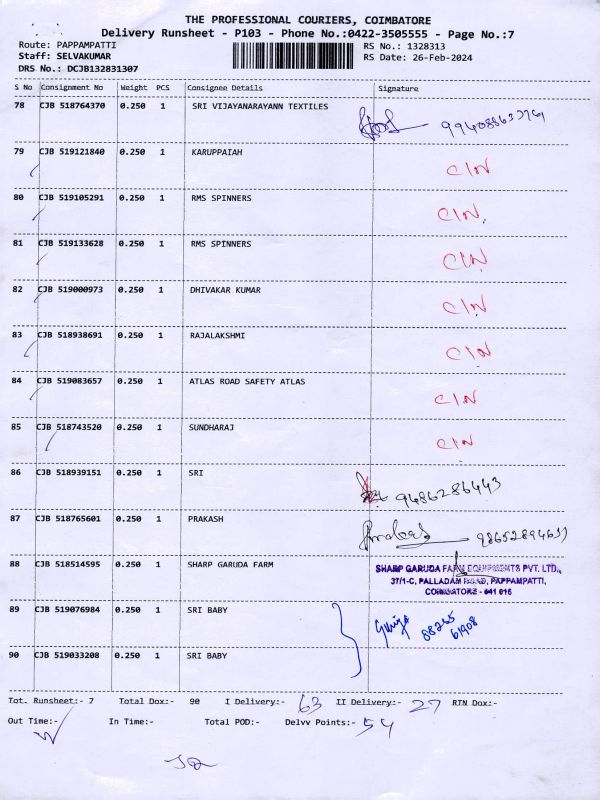 THE PROFESSIONAL COURIERS, COIMBATORE
Delivery Runsheet - P103 - Phone No.:0422-3505555 - Page No.:7
Route: PAPPAMPATTI RS No.: 1328313
Staff: SELVAKUMAR RS Date: 26-Feb-2024
DRS No.: DCJB132831307
S No Consignment No Weight PCS Consignee Details Signature
78 CJB 518764370 0.250 1 SRI VIJAYANARAYANN TEXTILES
79 CJB 519121840 0.250 1 KARUPPAIAH C/N
80 CJB 519105291 0.250 1 RMS SPINNERS C/N
81 CJB 519133628 0.250 1 RMS SPINNERS C/N
82 CJB 519000973 0.250 1 DHIVAKAR KUMAR C/N
83 CJB 518938691 0.250 1 RAJALAKSHMI C/N
84 CJB 519083657 0.250 1 ATLAS ROAD SAFETY ATLAS C/N
85 CJB 518743520 0.250 1 SUNDHARAJ C/N
86 CJB 518939151 0.250 1 SRI 9486286443
87 CJB 518765601 0.250 1 PRAKASH
88 CJB 518514595 0.250 1 SHARP GARUDA FARM SHARP GARUDA FARM EQUIPMENTS PVT. LTD.,
37/1-C, PALLADAM ROAD, PAPPAMPATTI,
COIMBATORE - 641 016
89 CJB 519076984 0.250 1 SRI BABY 88265
61908
90 CJB 519033208 0.250 1 SRI BABY
Tot. Runsheet:- 7 Total Dox:- 90 I Delivery:- 63 II Delivery:- 27 RTN Dox:-
Out Time:- In Time:- Total POD:- Delvv Points:- 54